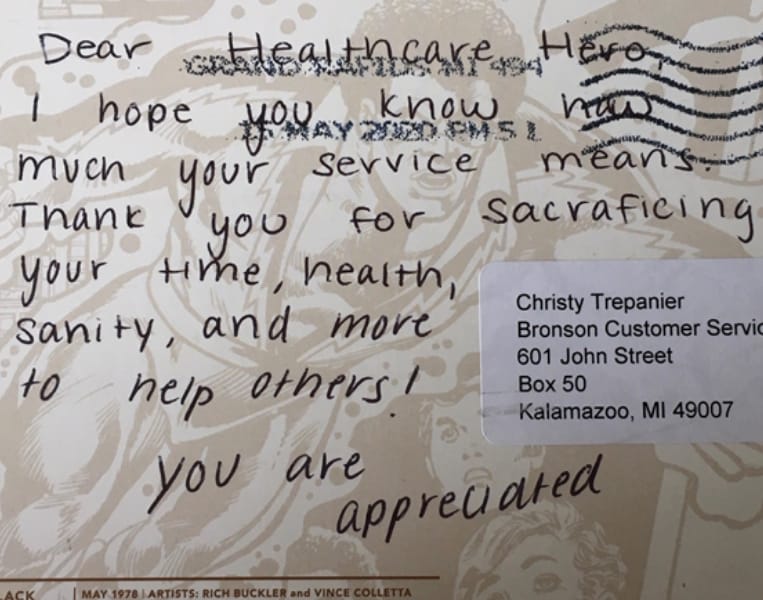 Dear Healthcare Hero,
GRAND RAPIDS MI 494
I hope you know how
15 MAY 2020 PM 5 L
much your service means.
Thank you for sacraficing
your time, health,
sanity, and more
to help others!
you are
appreciated
Christy Trepanier
Bronson Customer Servic
601 John Street
Box 50
Kalamazoo, MI 49007
ACK | MAY 1978 | ARTISTS: RICH BUCKLER and VINCE COLLETTA